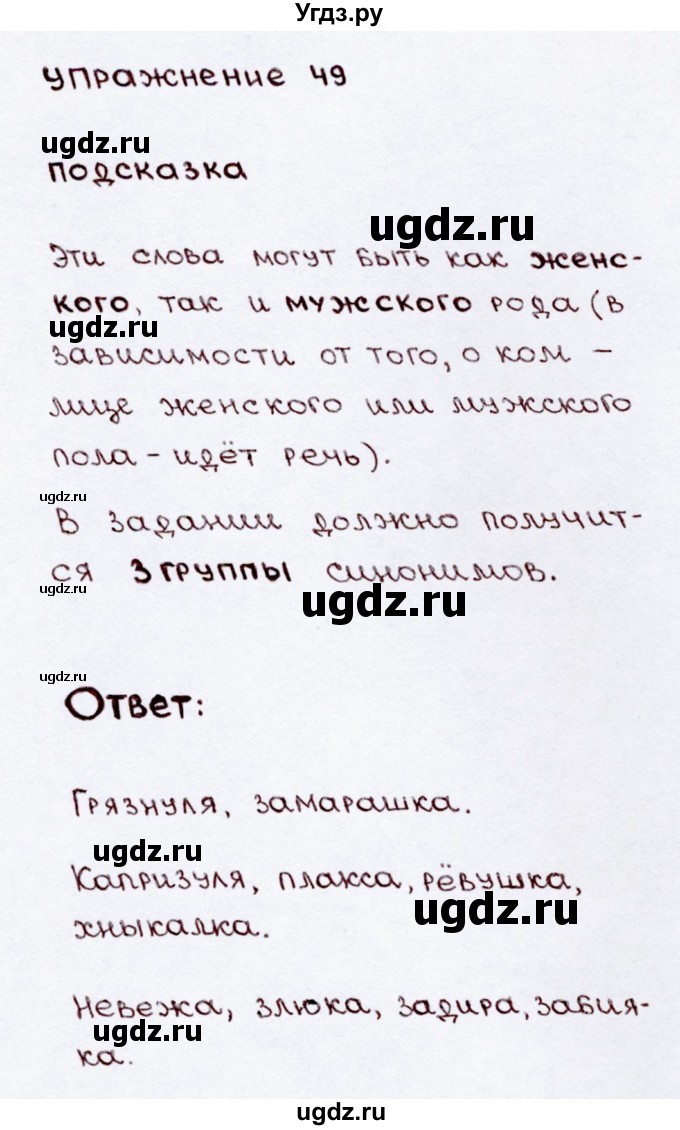 Угдз.ру
упражнение 49
ugdz.ru
подсказка
ugdz.ru
Эти слова могут быть как женс-
кого, так и мужского рода (в
ugdz.ru
зависимости от того, о ком -
лице женского или мужского
пола - идёт речь).
ugdz.ru
В задании должно получит-
ся 3 группы синонимов.
ugdz.ru
ugdz.ru
ugdz.ru
Ответ:
Грязнуля, замарашка.
ugdz.ru
Капризуля, плакса, рёвушка,
ugdz.ru
хныкалка.
Невежа, злюка, задира, забия-
ugdz.ru
ка.
ugdz.ru